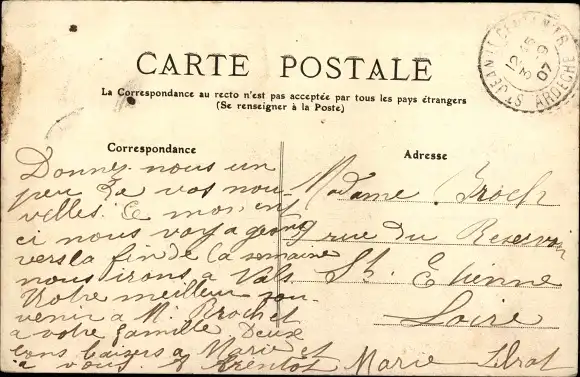 CARTE POSTALE
La Correspondance au recto n'est pas acceptée par tous les pays étrangers
(Se renseigner à la Poste)
Correspondance
Donnez nous un
peu de vos nou-
velles. Ce mois
ci nous voyageons
vers la fin de la semaine
nous irons a Vals
Notre meilleur sou-
venir a M. Brochet
a votre famille Deux
bons baisers a Marie et
a vous.
Marie
Adresse
Madame
rue du Reservoir
St. Etienne
Loire
ARDECHE
07